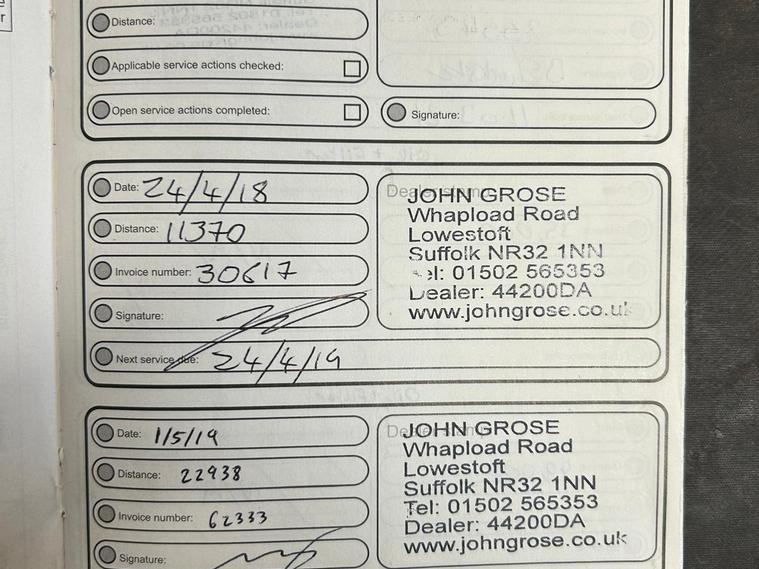 Distance:
Applicable service actions checked:
Open service actions completed:
Signature:
Date: 24/4/18
Distance: 11370
Invoice number: 30617
Signature:
Next service due: 24/4/19
Dealer stamp
JOHN GROSE
Whapload Road
Lowestoft
Suffolk NR32 1NN
Tel: 01502 565353
Dealer: 44200DA
www.johngrose.co.uk
Date: 1/5/19
Distance: 22938
Invoice number: 62333
Signature:
Dealer stamp
JOHN GROSE
Whapload Road
Lowestoft
Suffolk NR32 1NN
Tel: 01502 565353
Dealer: 44200DA
www.johngrose.co.uk